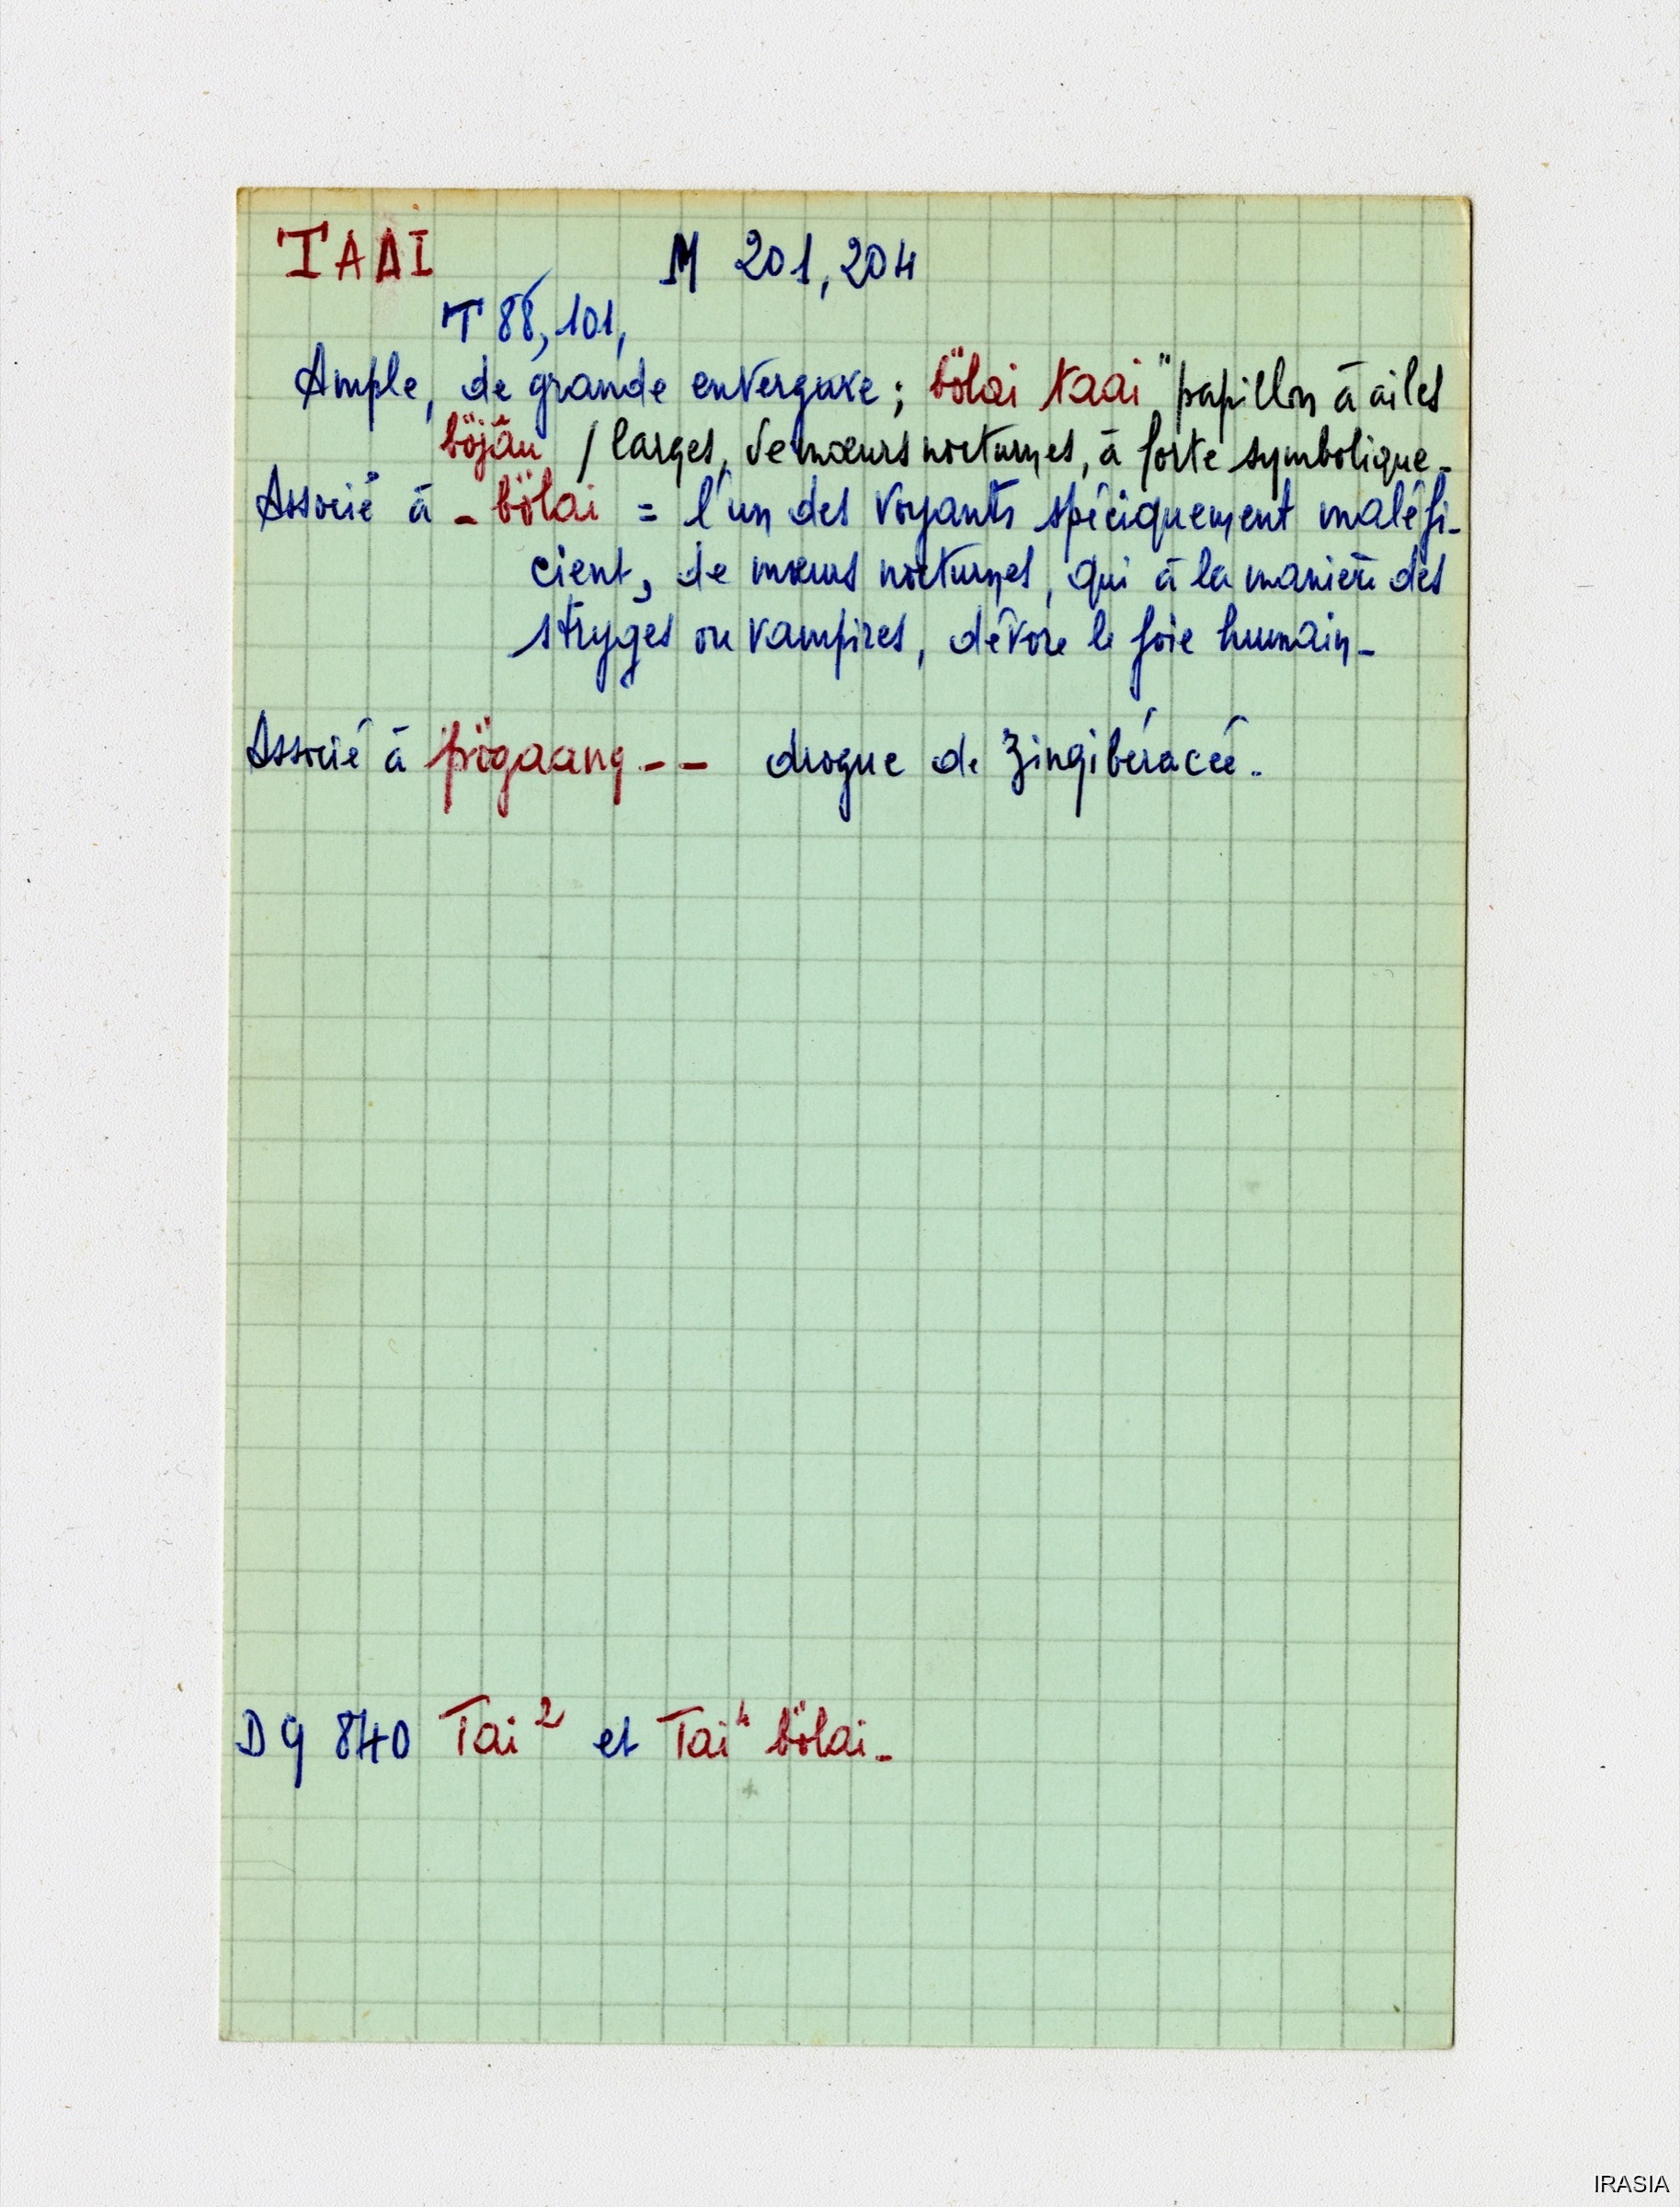 TAAI M 201, 204
T 88, 101,
Ample, de grande envergure ; bölai taai "papillon à ailes
böjâu / larges, de mœurs nocturnes, à forte symbolique -
Associé à - bölai = l'un des voyants spéciquement maléfi-
cient, de mœurs nocturnes, qui à la manière des
stryges ou vampires, dévore le foie humain -
Associé à pögaang -- drogue de Zingibéracée.
DG 840 Tai² et Tai⁴ bölai -
IRASIA